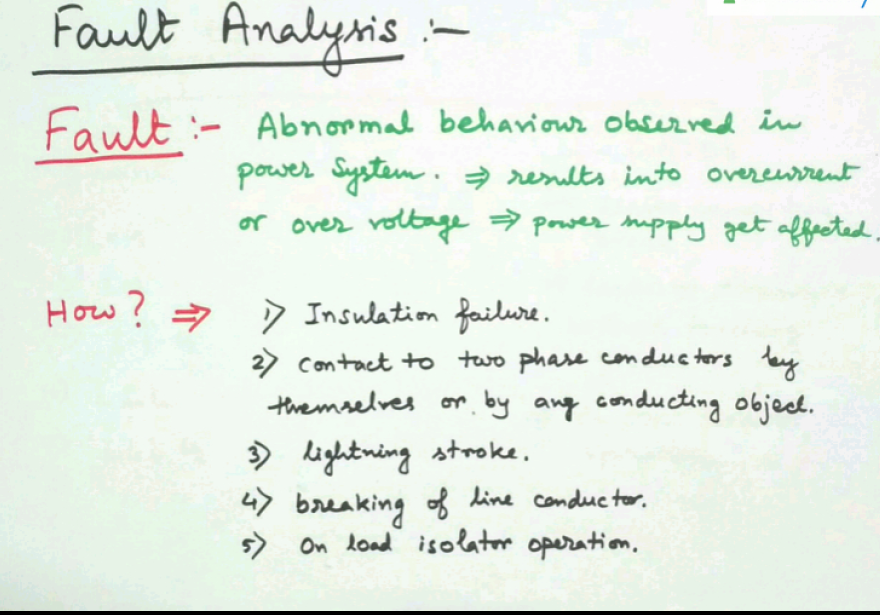 Fault Analysis :-
Fault :- Abnormal behaviour observed in
power System. ⇒ results into overcurrent
or over voltage ⇒ power supply get affected.
How? ⇒ 1) Insulation failure.
2) contact to two phase conductors by
themselves or by any conducting object.
3) lightning stroke.
4) breaking of line conductor.
5) On load isolator operation.